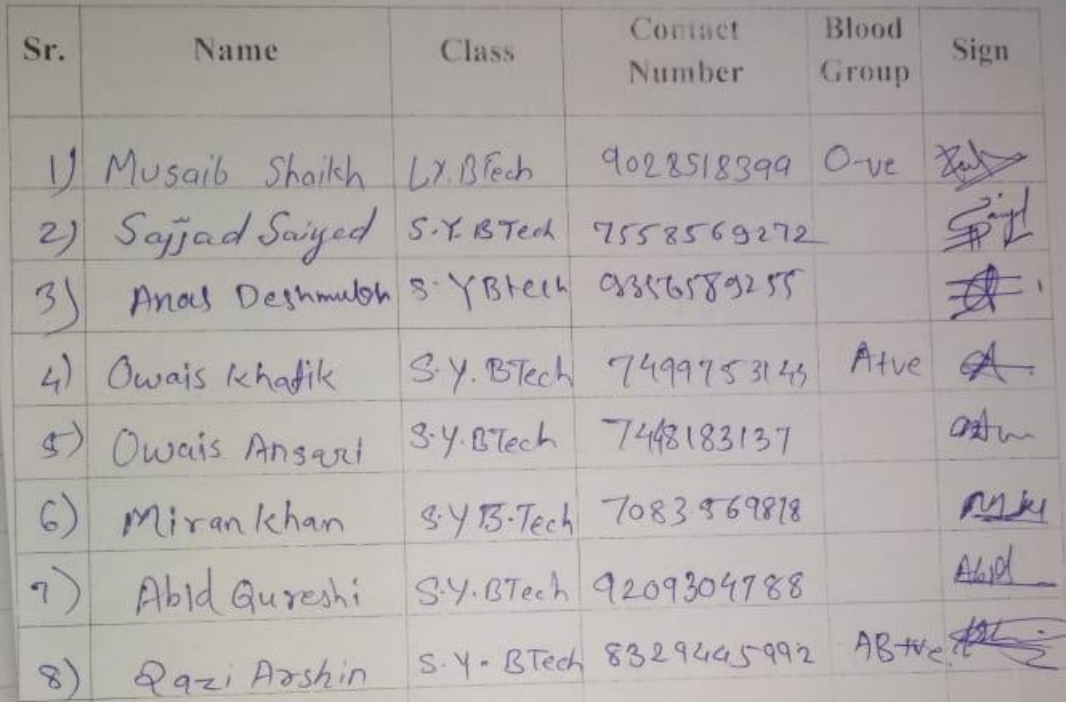 Sr. Name Class Contact Number Blood Group Sign
1) Musaib Shaikh L.Y. BTech 9028518399 O-ve
2) Sajjad Saiyed S.Y. BTech 7558569272
3) Anas Deshmukh S.Y Btech
4) Owais Khatik S.Y. BTech 7499753143 A+ve
5) Owais Ansari S.Y. BTech 7448183137
6) Miran khan S.Y B.Tech
7) Abid Qureshi S.Y. BTech 9209304788 Abid
8) Qazi Arshin S.Y. BTech 8329445992 AB+ve